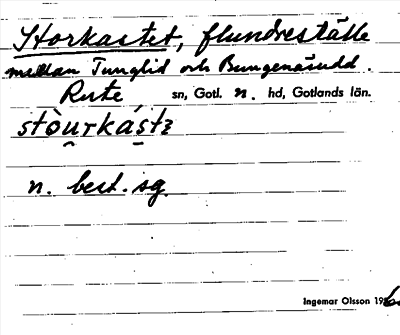 Storkastet, flundreställe
mellan Tunglid och Bungenäsudd.
Rute sn, Gotl. n. hd, Gotlands län.
n. best. sg.
Ingemar Olsson 19